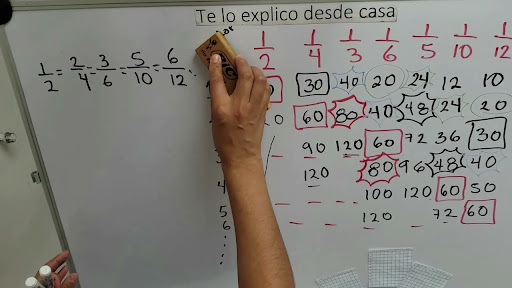 Te lo explico desde casa
1/2 = 2/4 = 3/6 = 5/10 = 6/12 .
1/2 1/4 1/3 1/6 1/5 1/10 1/12
30 40 20 24 12 10
60 80 40 48 24 20
90 120 60 72 36 30
120 80 96 48 40
4 100 120 60 50
5 120 72 60
6